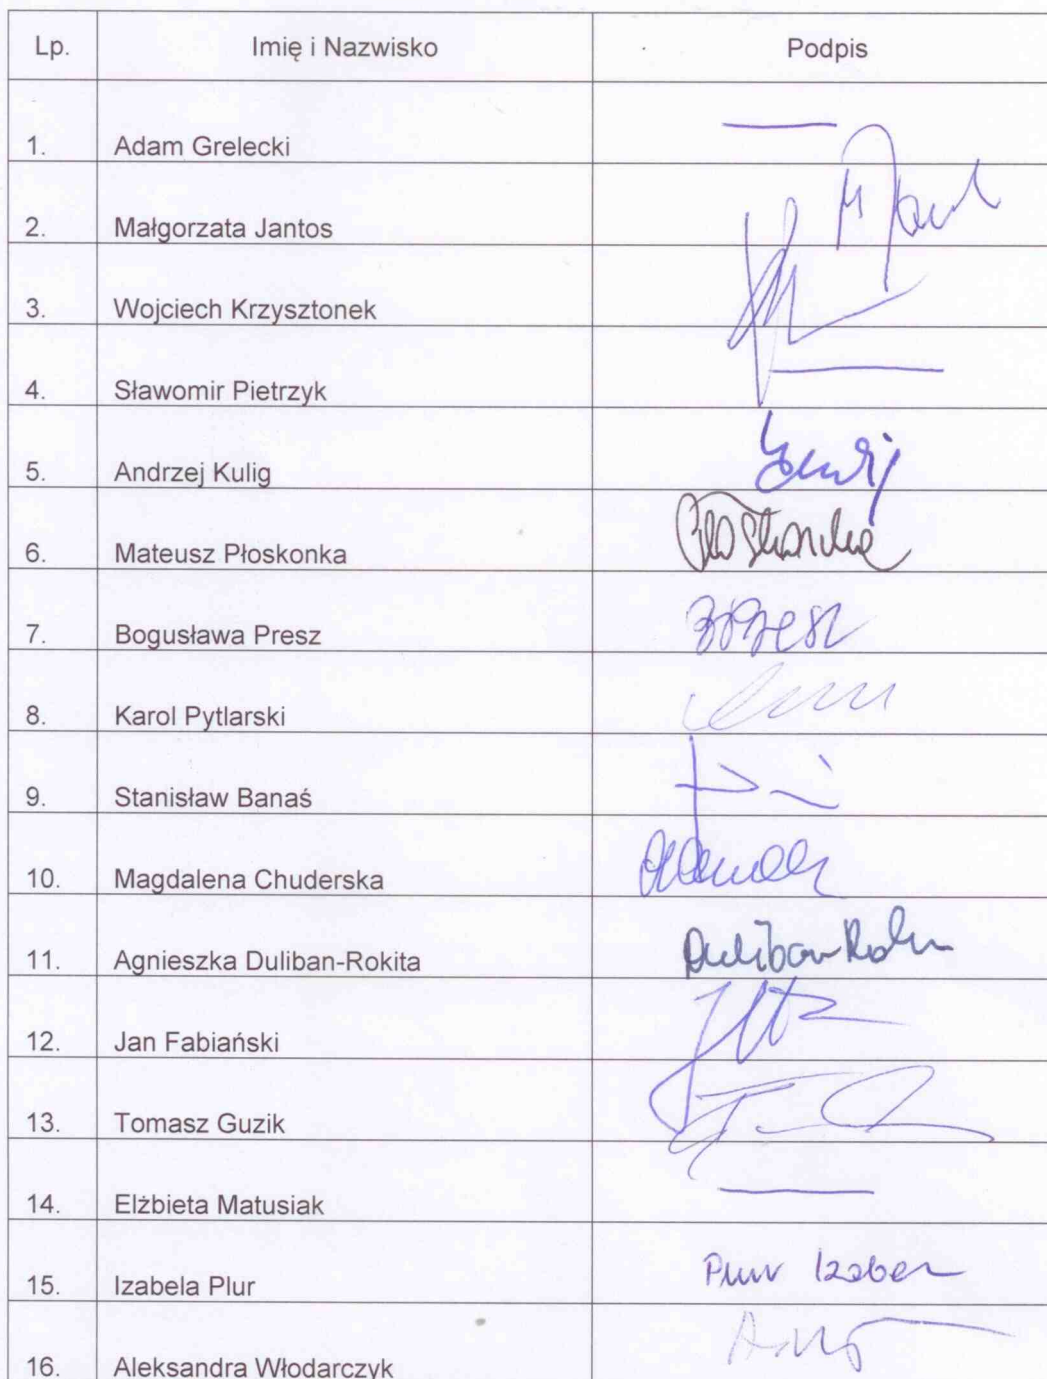 Lp. Imię i Nazwisko Podpis
1. Adam Grelecki
2. Małgorzata Jantos
3. Wojciech Krzysztonek
4. Sławomir Pietrzyk
5. Andrzej Kulig
6. Mateusz Płoskonka
7. Bogusława Presz
8. Karol Pytlarski
9. Stanisław Banaś
10. Magdalena Chuderska
11. Agnieszka Duliban-Rokita
12. Jan Fabiański
13. Tomasz Guzik
14. Elżbieta Matusiak
15. Izabela Plur
16. Aleksandra Włodarczyk